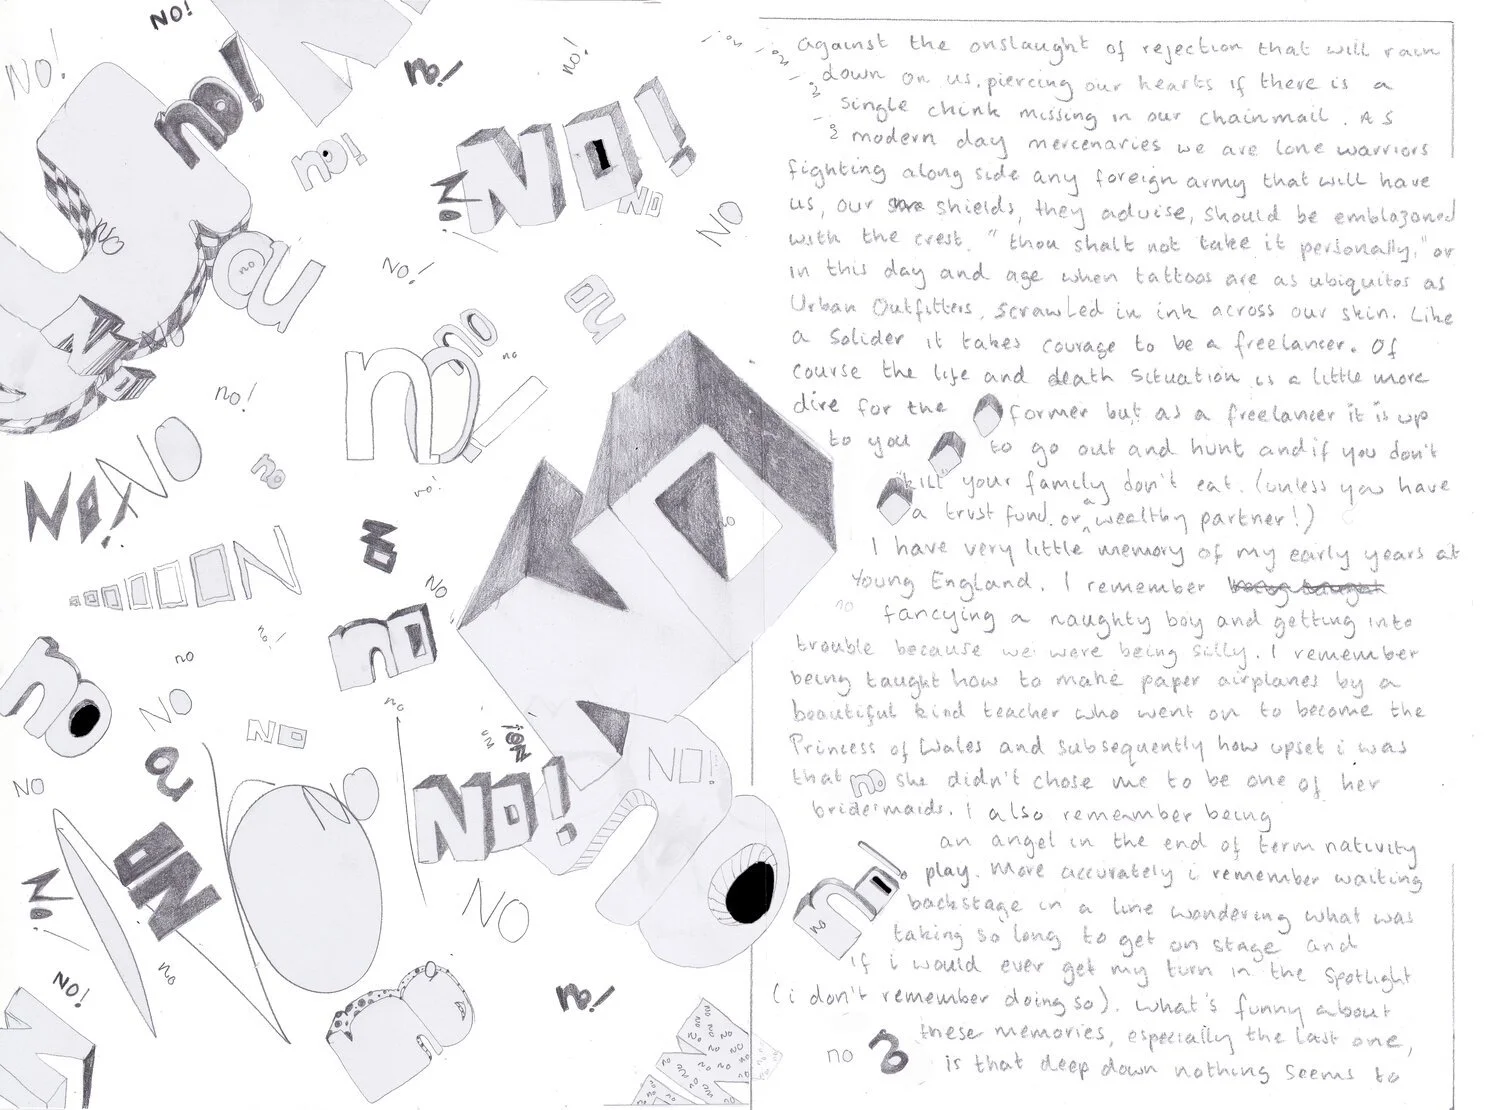 NO!
NO!
no!
no!
no!
no!
NO!
NO
NO
NO
no
NO!
no
no
no
no!
NO!
NO
no
no!
NO
NO
no
no
NO
no
NO
NO
NO
NO
NO!
NO!
NO
NO
no
NO!
no!
no
against the onslaught of rejection that will rain
down on us, piercing our hearts if there is a
single chink missing in our chainmail. As
modern day mercenaries we are lone warriors
fighting along side any foreign army that will have
us, our shields, they advise, should be emblazoned
with the crest. "thou shalt not take it personally," or
in this day and age when tattoos are as ubiquitos as
Urban Outfitters, scrawled in ink across our skin. Like
a Solider it takes courage to be a freelancer. Of
course the life and death situation is a little more
dire for the former but as a freelancer it is up
to you to go out and hunt and if you don't
"kill" your family don't eat. (unless you have
a trust fund or a wealthy partner!)
I have very little memory of my early years at
Young England. I remember being taught
no
fancying a naughty boy and getting into
trouble because we were being silly. I remember
being taught how to make paper airplanes by a
beautiful kind teacher who went on to become the
Princess of Wales and subsequently how upset i was
that no she didn't chose me to be one of her
bridesmaids. I also remember being
an angel in the end of term nativity
play. More accurately i remember waiting
backstage in a line wondering what was
taking so long to get on stage and
if i would ever get my turn in the spotlight
(i don't remember doing so). What's funny about
these memories, especially the last one,
no
is that deep down nothing seems to